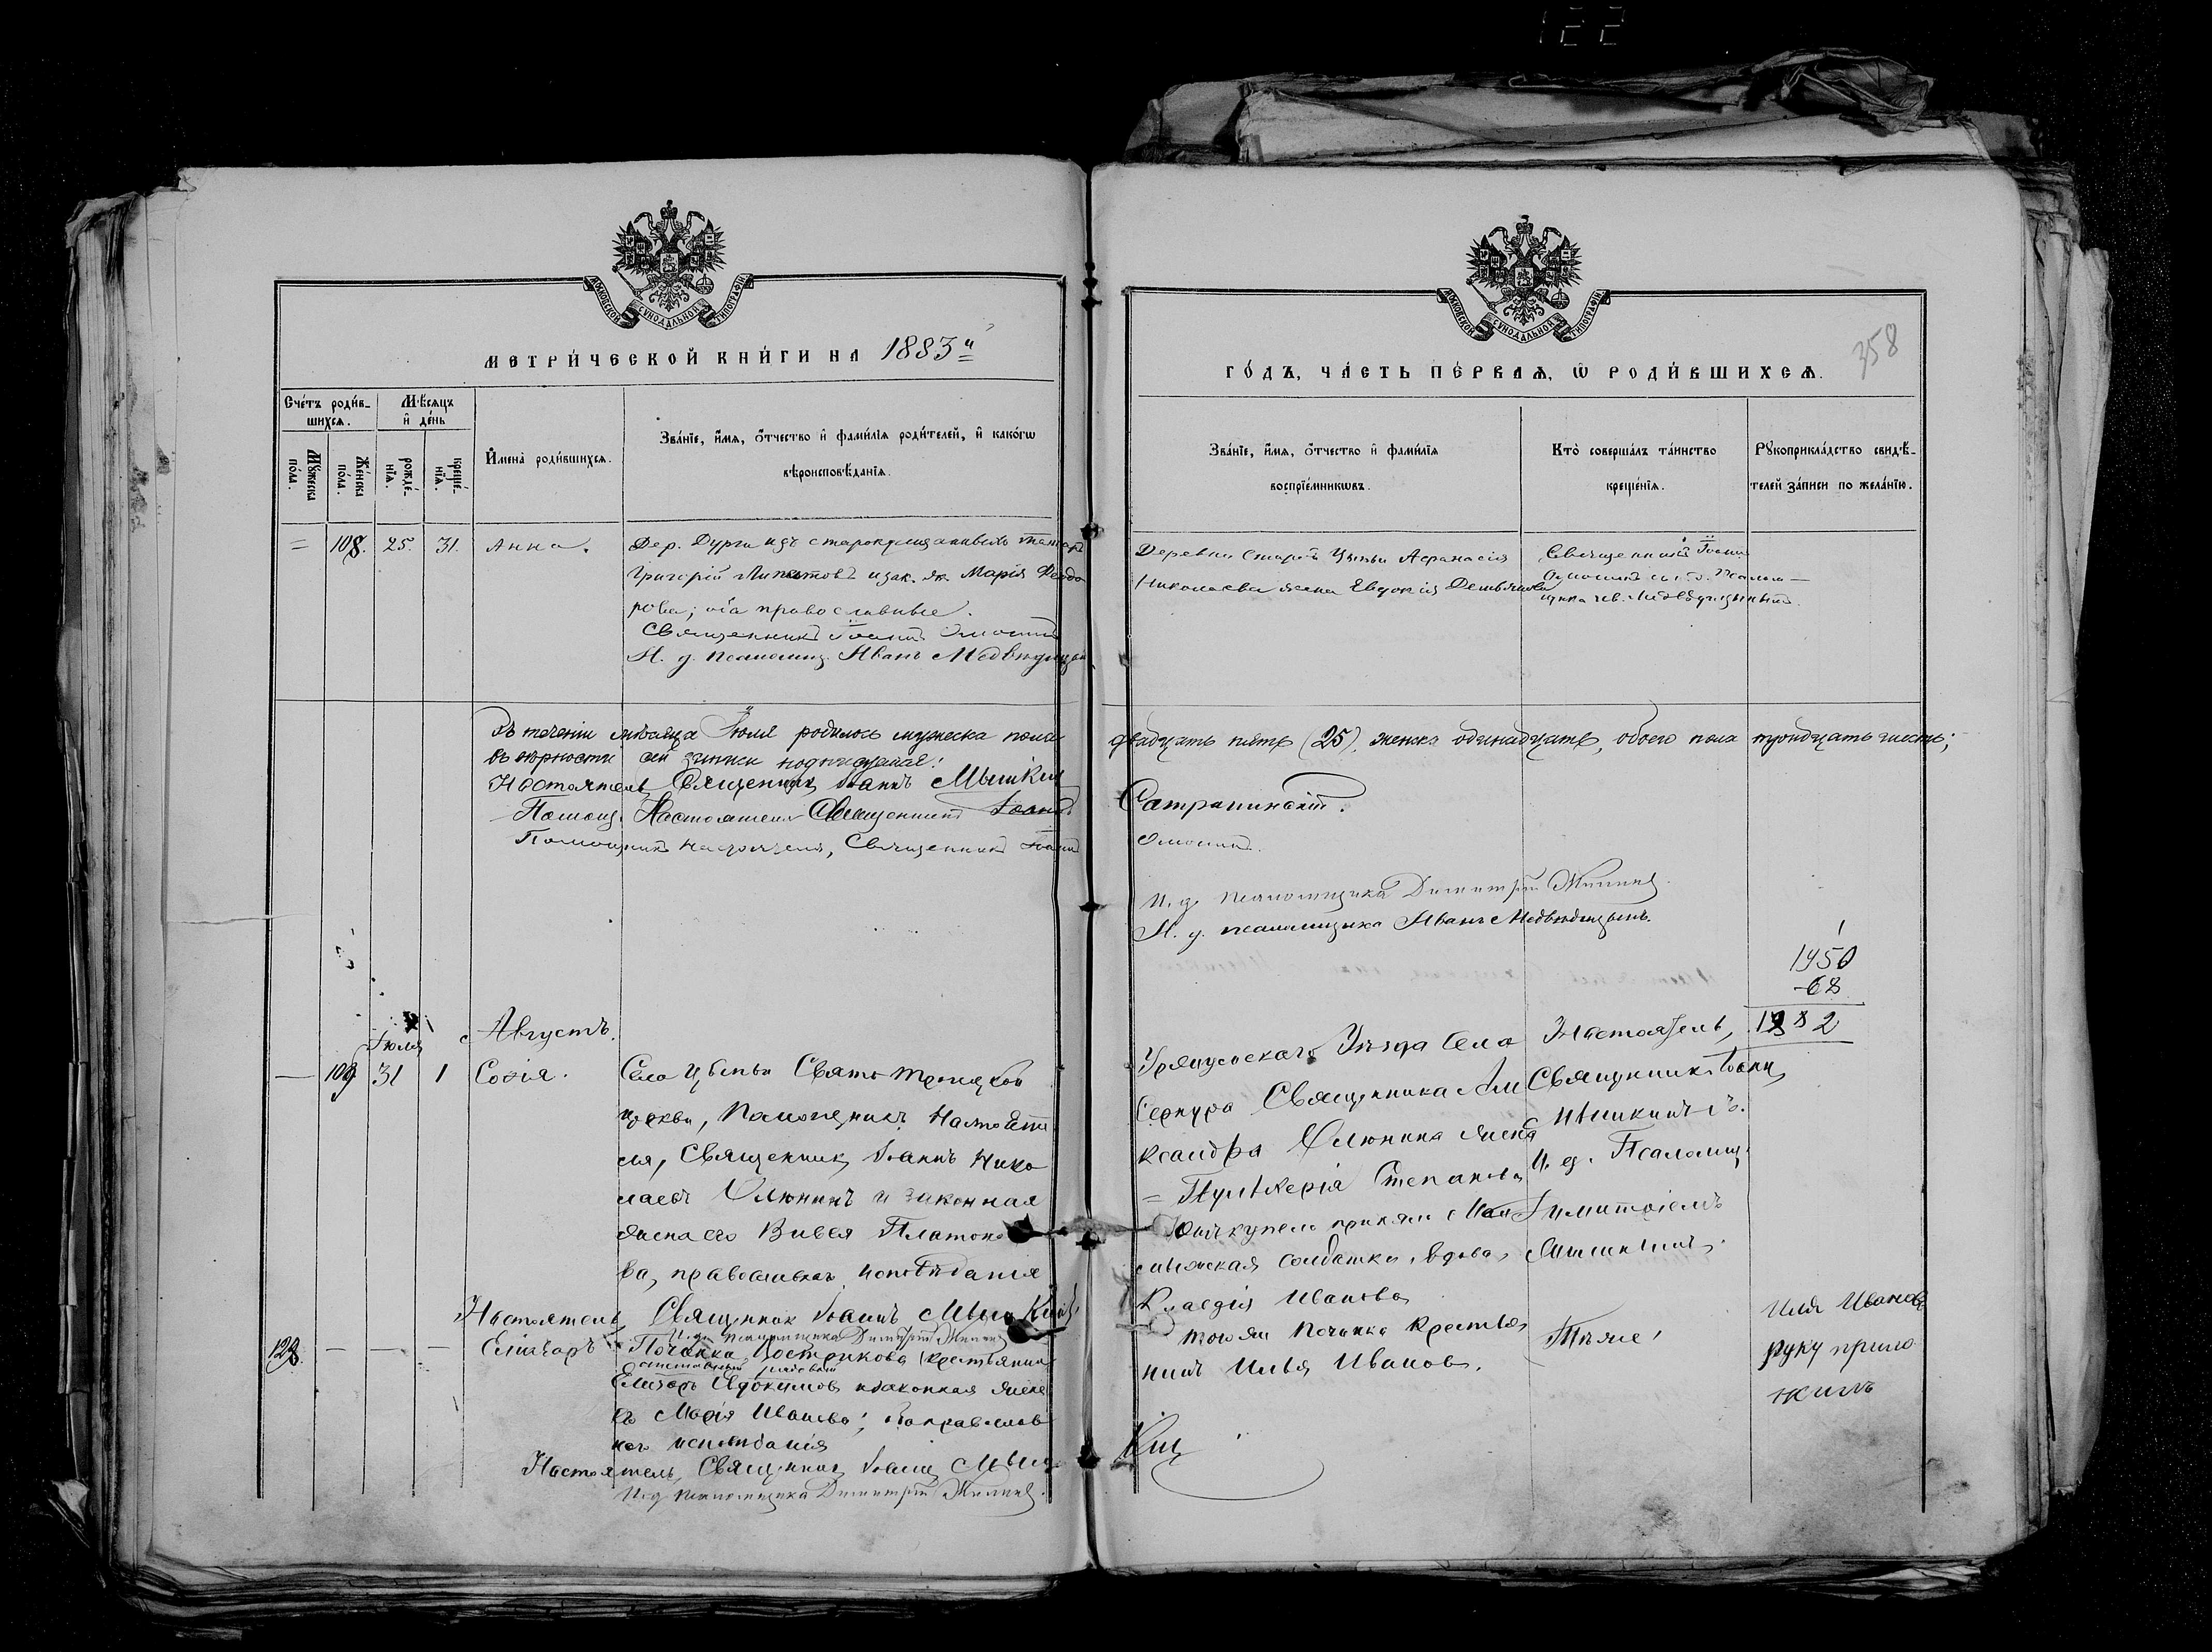 122
МОСКОВСКОЙ СѴНОДАЛЬНОЙ ТИПОГРАФІИ.
МЕТРИ́ЧЕСКОЙ КНИ́ГИ НА 1883й
Сче́тъ роди́в-
шихсѧ.
Мѣ́сѧцъ
и҆ де́нь
Мꙋ́жеска
по́ла.
Же́нска
по́ла.
рожде́-
нїѧ.
креще́-
нїѧ.
И҆мена̀ роди́вшихсѧ.
Зва́нїе, и҆́мѧ, ѻ҆́тчество и҆ фами́лїѧ роди́телей, и҆ како́гѡ
вѣроисповѣ́данїѧ.
= 108. 25. 31. Анна.
Дер. Дурги изъ старокрещаныхъ татаръ
Григорій Липатовъ и зак. ж. Марія Ѳеодо
рова; оба православные.
Священникъ Іоаннъ
И. д. псаломщ. Иванъ Медвѣдицы
Въ теченіи мѣсяца Іюля родилось мужеска пола
въ вѣрности сей записи подписуемся:
Настоятель Священникъ Іоаннъ Мышкин
Помощ. Настоятеля Священникъ Іоаннъ
Помощникъ настоятеля, Священникъ Іоаннъ
Іюля
Августъ.
— 109 31 1 Софія.
Села Цыпьи Свято Троицкой
церкви, Помощникъ Настояте
ля, Священникъ Іоаннъ Нико
лаевъ и законная
жена его Платоно
ва, православнаго исповѣданія
Настоятель, Священник Іоаннъ Мышкинъ
И. д. Псаломщика Димитрій
128. — — — Еліазаръ
Починка Вострикова крестьянин
Елизаръ Евдокимов и законная жена
его Марія Иванова; оба православ
наго исповѣданія
Настоятель, Священникъ Іоаннъ Мыш
И. д. псаломщика Димитрій
МОСКОВСКОЙ СѴНОДАЛЬНОЙ ТИПОГРАФІИ.
358
ГО́ДЪ, ЧА́СТЬ ПЕ́РВАѦ, Ѽ РОДИ́ВШИХСѦ.
Зва́нїе, и҆́мѧ, ѻ҆́тчество и҆ фами́лїѧ
воспрїе́мникѡвъ.
Кто̀ соверша́лъ та́инство
креще́нїѧ.
Рꙋкоприкла́дство свидѣ́-
телей за́писи по жела́нїю.
Деревни Старой Цыпьи Аѳанасія
Николаева жена Евдокія
Священникъ Іоаннъ
двадцать пять (25), женска одинадцать, обоего пола тридцать шесть;
Сатрапинскій.
И. д. псаломщика Димитрій
И. д. псаломщика Иванъ Медвѣдицынъ.
1950
-68
1882
Уржумскаго Уѣзда Села
Сернура Священника Але
ксандра жена
= Пулхерія Степанова
купели приняла
солдатка, вдова,
Клавдія Иванова
Настоятель,
Священникъ Іоанн
Мышкинъ съ
И. д. Псаломщ.
Димитріемъ
того же Починка крестья
нинъ Илья Иванов.
Тѣже!
Илья Иванов
руку прило
жилъ
Кин